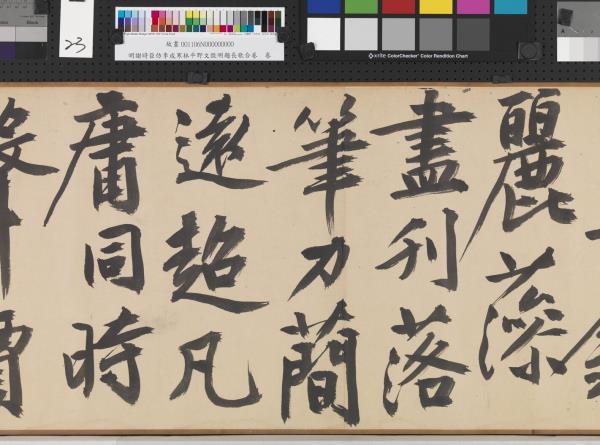 Black
23
故畫001106N000000000
明謝時臣仿李成寒林平野文徵明題長歌合卷 卷
x-rite ColorChecker Color Rendition Chart
麗藻
盡刊落
筆力簡
遠超凡
庸同時
價